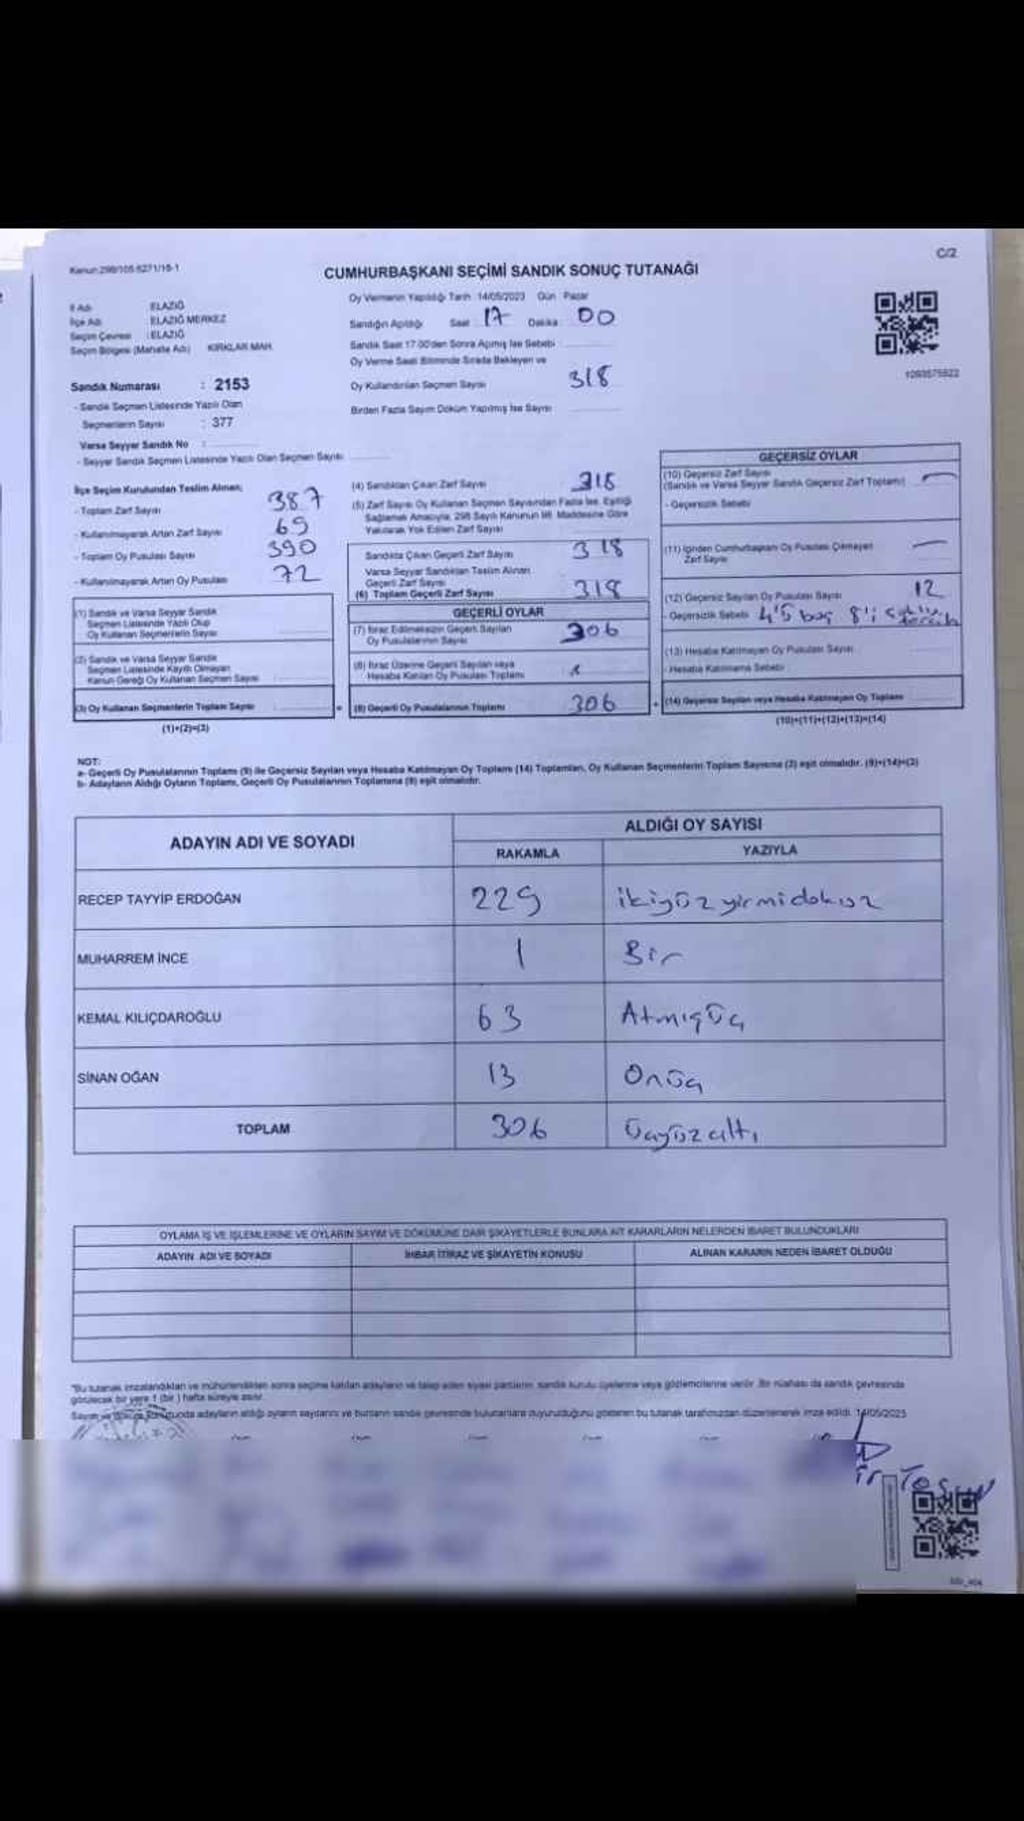 Kanun:298/105 6271/15-1
C/2
CUMHURBAŞKANI SEÇİMİ SANDIK SONUÇ TUTANAĞI
İl Adı ELAZIĞ
İlçe Adı ELAZIĞ MERKEZ
Seçim Çevresi : ELAZIĞ
Seçim Bölgesi (Mahalle Adı) KIRKLAR MAH.
Oy Vermenin Yapıldığı Tarih 14/05/2023 Gün Pazar
Sandığın Açıldığı Saat 17 Dakika 00
Sandık Saat 17:00'den Sonra Açılmış İse Sebebi
Oy Verme Saati Bitiminde Sırada Bekleyen ve
Oy Kullandırılan Seçmen Sayısı 318
Birden Fazla Sayım Döküm Yapılmış İse Sayısı
Sandık Numarası : 2153
- Sandık Seçmen Listesinde Yazılı Olan
Seçmenlerin Sayısı : 377
Varsa Seyyar Sandık No :
- Seyyar Sandık Seçmen Listesinde Yazılı Olan Seçmen Sayısı
İlçe Seçim Kurulundan Teslim Alınan;
- Toplam Zarf Sayısı 387
- Kullanılmayarak Artan Zarf Sayısı 69
- Toplam Oy Pusulası Sayısı 390
- Kullanılmayarak Artan Oy Pusulası 72
(1) Sandık ve Varsa Seyyar Sandık
Seçmen Listesinde Yazılı Olup
Oy Kullanan Seçmenlerin Sayısı
(2) Sandık ve Varsa Seyyar Sandık
Seçmen Listesinde Kayıtlı Olmayan
Kanun Gereği Oy Kullanan Seçmen Sayısı
(3) Oy Kullanan Seçmenlerin Toplam Sayısı
(1)+(2)=(3)
(4) Sandıktan Çıkan Zarf Sayısı 318
(5) Zarf Sayısı Oy Kullanan Seçmen Sayısından Fazla İse, Eşitliği
Sağlamak Amacıyla, 298 Sayılı Kanunun 98. Maddesine Göre
Yakılarak Yok Edilen Zarf Sayısı
Sandıkta Çıkan Geçerli Zarf Sayısı 318
Varsa Seyyar Sandıktan Teslim Alınan
Geçerli Zarf Sayısı
(6) Toplam Geçerli Zarf Sayısı 318
GEÇERLİ OYLAR
(7) İtiraz Edilmeksizin Geçerli Sayılan
Oy Pusulalarının Sayısı 306
(8) İtiraz Üzerine Geçerli Sayılan veya
Hesaba Katılan Oy Pusulası Toplamı
(9) Geçerli Oy Pusulalarının Toplamı 306
GEÇERSİZ OYLAR
(10) Geçersiz Zarf Sayısı
(Sandık ve Varsa Seyyar Sandık Geçersiz Zarf Toplamı)
- Geçersizlik Sebebi
(11) İçinden Cumhurbaşkanı Oy Pusulası Çıkmayan
Zarf Sayısı
(12) Geçersiz Sayılan Oy Pusulası Sayısı 12
- Geçersizlik Sebebi 4'ü boş 8'i
(13) Hesaba Katılmayan Oy Pusulası Sayısı
- Hesaba Katılmama Sebebi
(14) Geçersiz Sayılan veya Hesaba Katılmayan Oy Toplamı
(10)+(11)+(12)+(13)=(14)
NOT:
a- Geçerli Oy Pusulalarının Toplamı (9) ile Geçersiz Sayılan veya Hesaba Katılmayan Oy Toplamı (14) Toplamları, Oy Kullanan Seçmenlerin Toplam Sayısına (3) eşit olmalıdır. (9)+(14)=(3)
b- Adayların Aldığı Oyların Toplamı, Geçerli Oy Pusulalarının Toplamına (9) eşit olmalıdır.
ADAYIN ADI VE SOYADI
ALDIĞI OY SAYISI
RAKAMLA YAZIYLA
RECEP TAYYİP ERDOĞAN 229 ikiyüzyirmidokuz
MUHARREM İNCE 1 Bir
KEMAL KILIÇDAROĞLU 63 Atmışüç
SİNAN OĞAN 13 Onüç
TOPLAM 306 üçyüzaltı
OYLAMA İŞ VE İŞLEMLERİNE VE OYLARIN SAYIM VE DÖKÜMÜNE DAİR ŞİKAYETLERLE BUNLARA AİT KARARLARIN NELERDEN İBARET BULUNDUKLARI
ADAYIN ADI VE SOYADI İHBAR İTİRAZ VE ŞİKAYETİN KONUSU ALINAN KARARIN NEDEN İBARET OLDUĞU
*Bu tutanak imzalandıktan ve mühürlendikten sonra seçime katılan adayların ve talep eden siyasi partilerin, sandık kurulu üyelerine veya gözlemcilerine verilir. Bir nüshası da sandık çevresinde
görülecek bir yere 1 (bir ) hafta süreyle asılır.
Sayım ve döküm sonucunda adayların aldığı oyların sayılarını ve bunların sandık çevresinde bulunanlara duyurulduğunu gösteren bu tutanak tarafımızdan düzenlenerek imza edildi. 14/05/2023